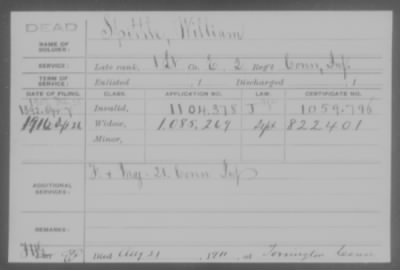 DEAD
NAME OF SOLDIER: Spittle, William
SERVICE: Late rank, 1 Lt. Co. E, 2 Reg't Conn, Inf.
TERM OF SERVICE: Enlisted , 1 Discharged , 1
DATE OF FILING. CLASS. APPLICATION NO. LAW. CERTIFICATE NO.
Invalid, 1104,378 1059,796
1916 Widow, 1,085,269 Sept 822401
Minor,
ADDITIONAL SERVICES: 21 Conn Inf
REMARKS:
Died Aug 31, 1911, at Torrington Conn